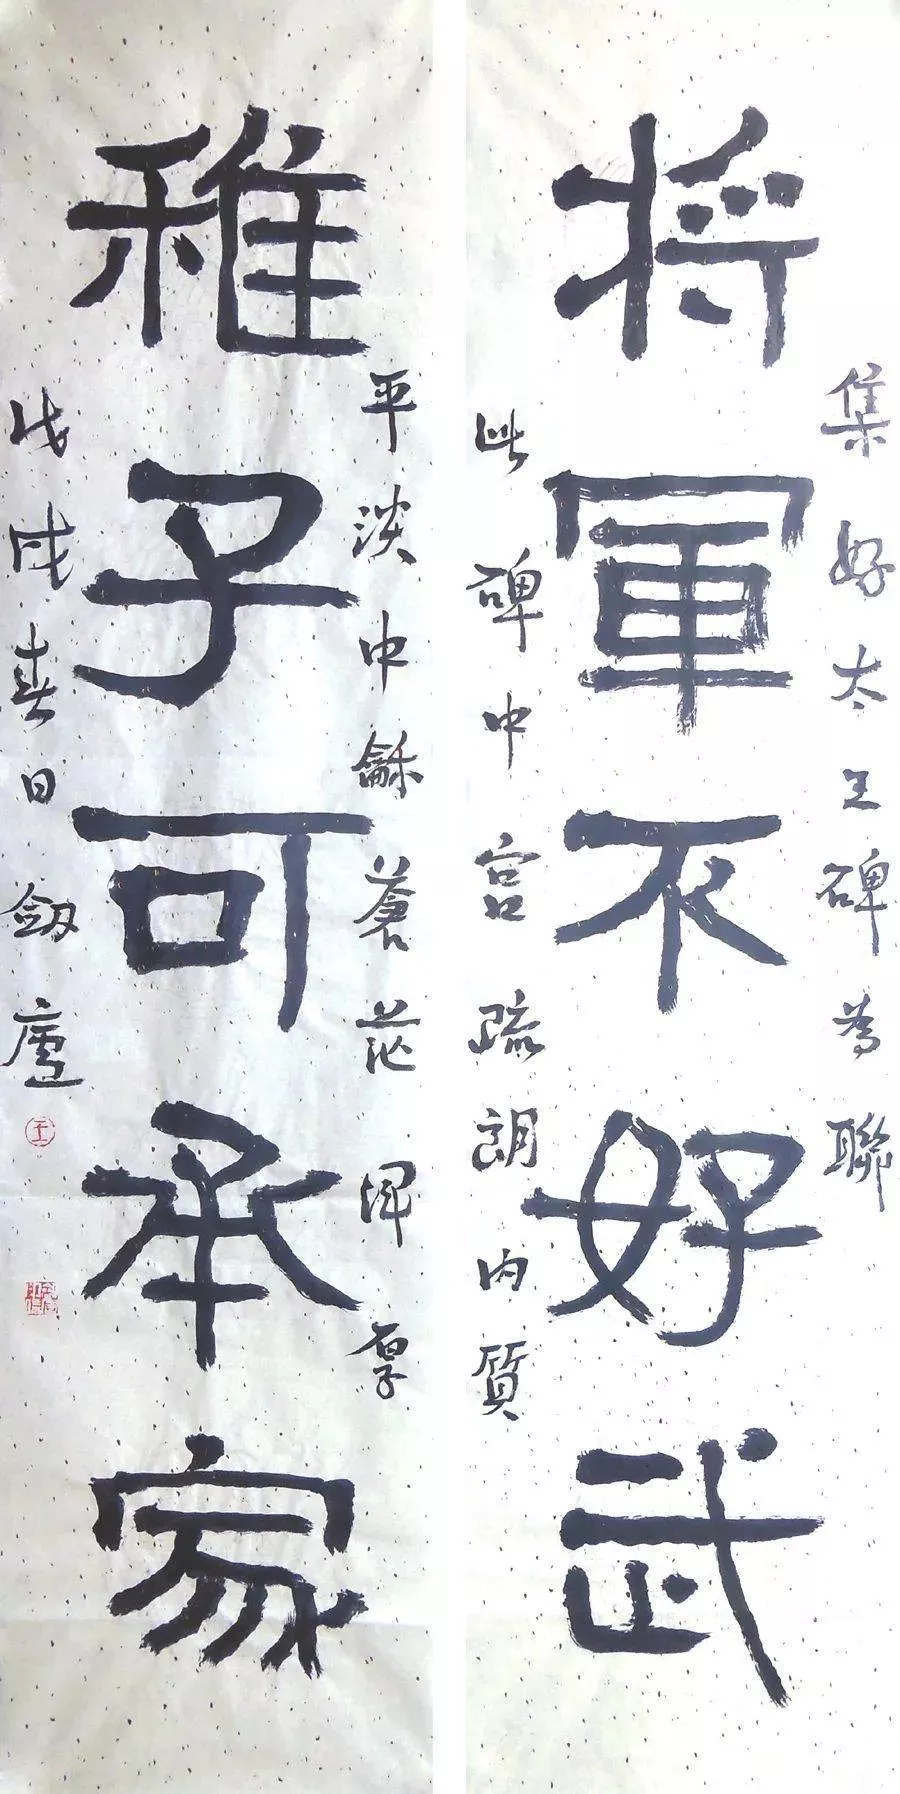 集好太王碑為聯
將軍不好武
此碑中宮疏朗內質
平淡中龢蒼茫渾厚
稚子可承家
戊戌春日劔廬
王